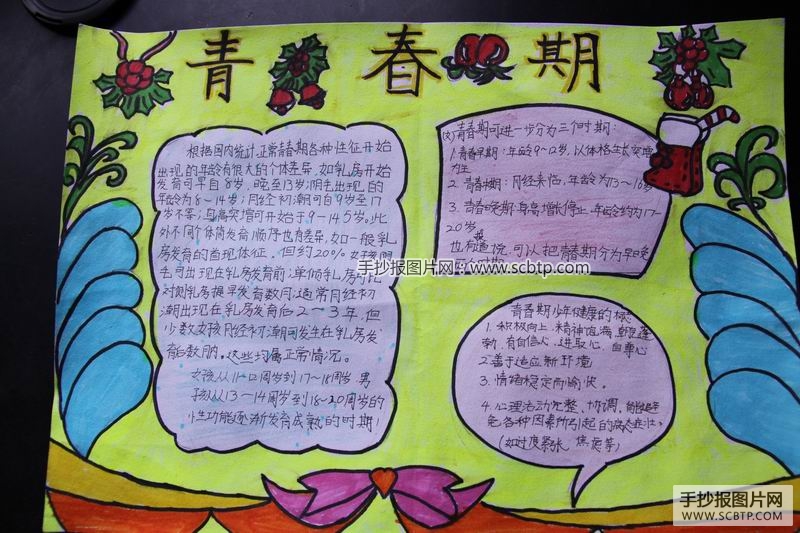 青春期
根据国内统计,正常青春期各种性征开始
出现的年龄有很大的个体差异,如乳房开始
发育可早自8岁,晚至13岁;阴毛出现的
年龄为8~14岁;月经初潮可自9岁至17
岁不等;身高突增可开始于9-14.5岁。此
外不同个体间发育顺序也有差异,如一般乳
房发育的首现体征,但约20%女孩阴
毛可出现在乳房发育前;单侧乳房可比
对侧乳房提早发育数月;通常月经初
潮出现在乳房发育后2~3年,但
少数女孩月经初潮可发生在乳房发
育数月内。这些均属正常情况。
女孩从11-12周岁到17~18周岁 男
孩从13~14周岁到18~20周岁的
性功能逐渐发育成熟的时期!
青春期可进一步分为三个时期:
1.青春早期:年龄9~12岁,以体格生长突增
为主
2.青春中期:月经来临,年龄为13~16岁
3.青春晚期:身高增长停止,年龄约为17~
20岁。
也有 可以把青春期分为早晚
青春期少年健康的标志
1.积极向上,精神饱满,朝气蓬
勃,有自信人,进取心,自尊心
2.善于适应新环境
3.情绪稳定而愉快。
4.心理活动完整、协调,能避
免各种因素所引起的病态症状。
(如过度紧张 焦虑等)
手抄报图片网 www.scbtp.com
手抄报图片网
WWW.SCBTP.COM